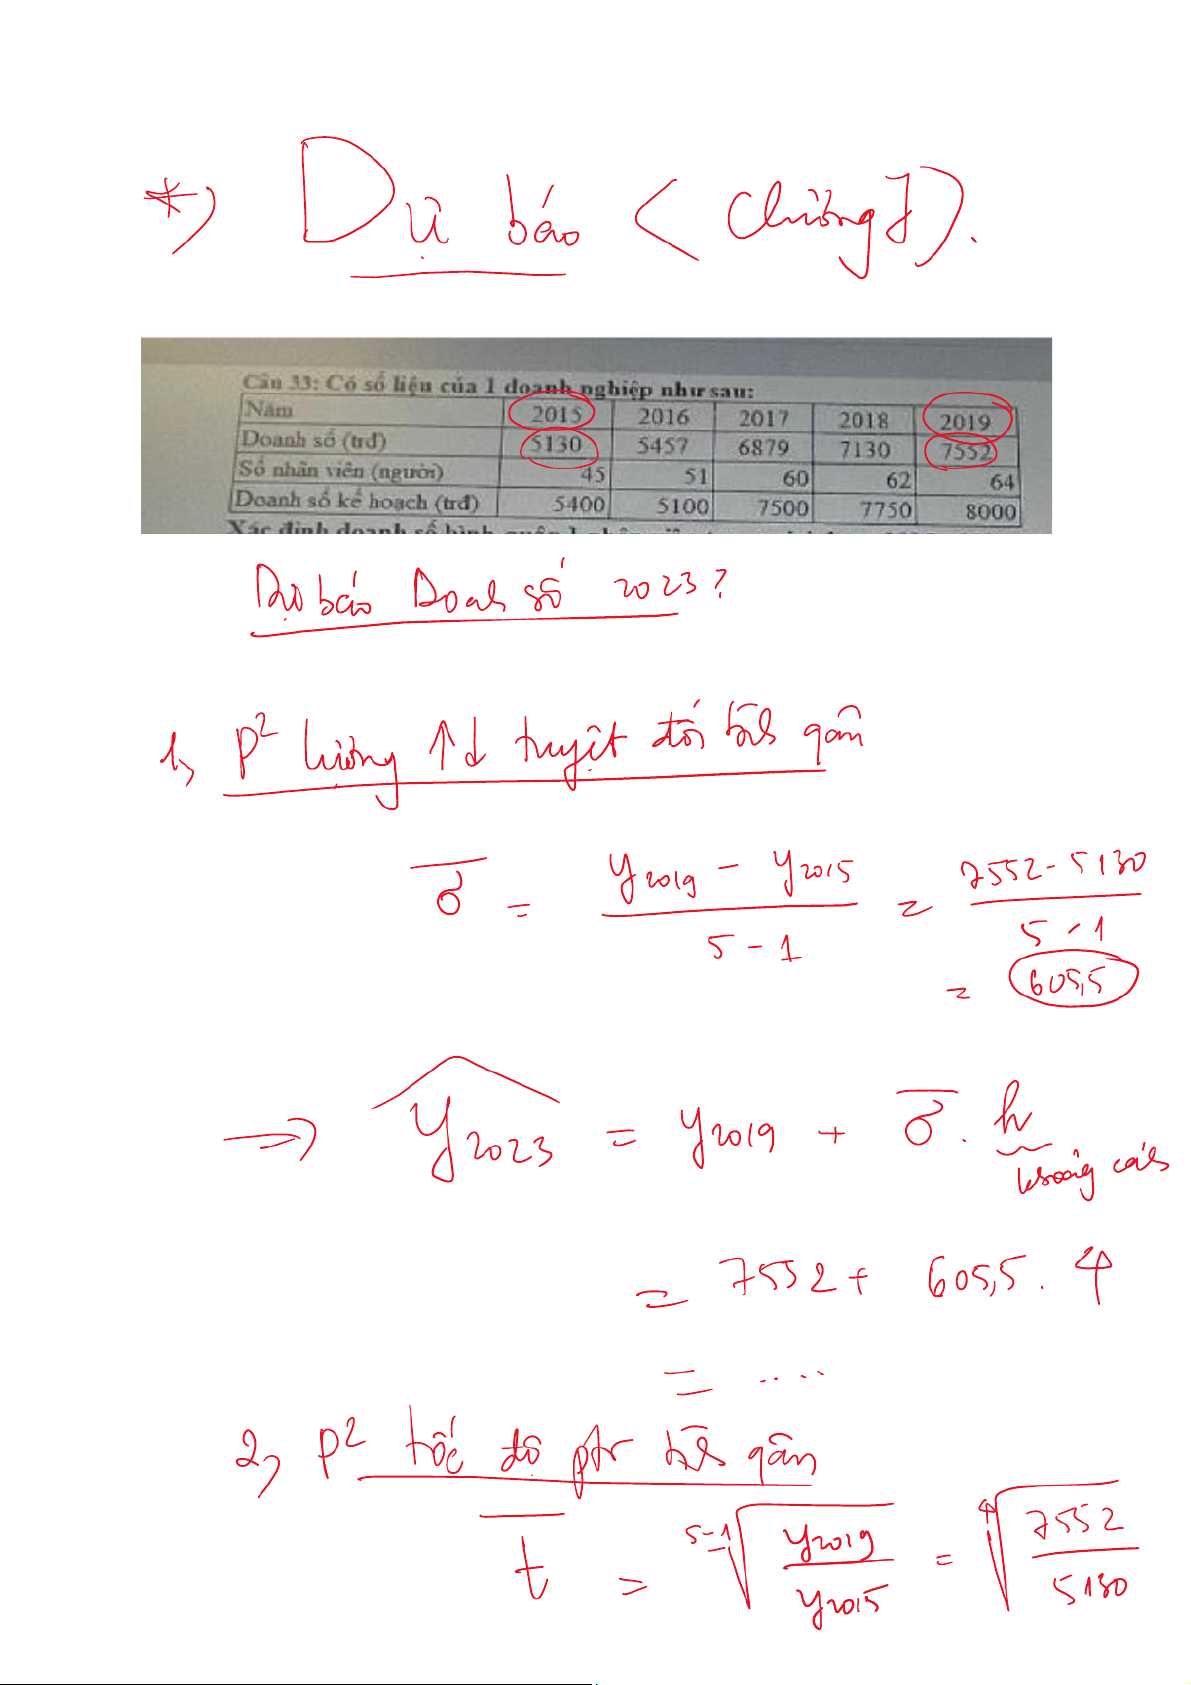 *) Dự báo < Chương 7).
Câu 33: Có số liệu của 1 doanh nghiệp như sau:
Năm 2015 2016 2017 2018 2019
Doanh số (trđ) 5130 5457 6879 7130 7552
Số nhân viên (người) 45 51 60 62 64
Doanh số kế hoạch (trđ) 5400 5100 7500 7750 8000
Xác định doanh số bình quân 1 nhân viên
Dự báo Doanh số 2023?
1, P² lượng ↑↓ tuyệt đối bình quân
σ̅ = (y2019 - y2015)/(5 - 1) = (7552 - 5130)/(5 - 1)
= 605,5
=> ŷ2023 = y2019 + σ̅ . h
khoảng cách
= 7552 + 605,5 . 4
= .....
2, P² tốc độ ptr bình quân
t̅ = ⁵⁻¹√(y2019/y2015) = ⁴√(7552/5130)